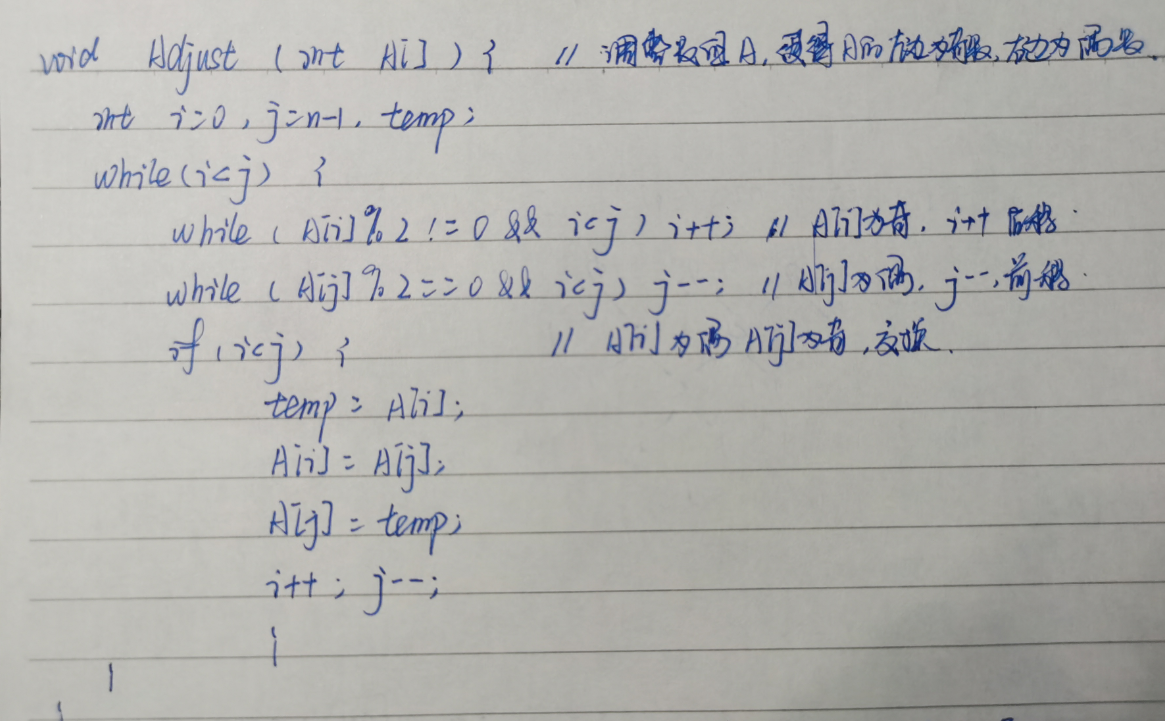 void Adjust (int A[]) { // 调整数组A,使得A的左边为奇数,右边为偶数.
int i=0, j=n-1, temp;
while(i<j) {
while (A[i]%2!=0 && i<j) i++; // A[i]为奇, i++ 后移.
while (A[j]%2==0 && i<j) j--; // A[j]为偶, j--,前移.
if (i<j) { // A[i]为偶 A[j]为奇,交换.
temp = A[i];
A[i] = A[j];
A[j] = temp;
i++; j--;
}
}
}